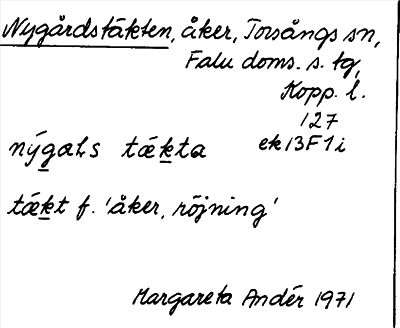 Nygårdstäkten, åker, Torsångs sn,
Falu doms. s. tg,
Kopp. l.
127
ek 13F1i
nýgaḷs tǽkta
tǽkt f. 'åker, röjning'
Margareta Andér 1971